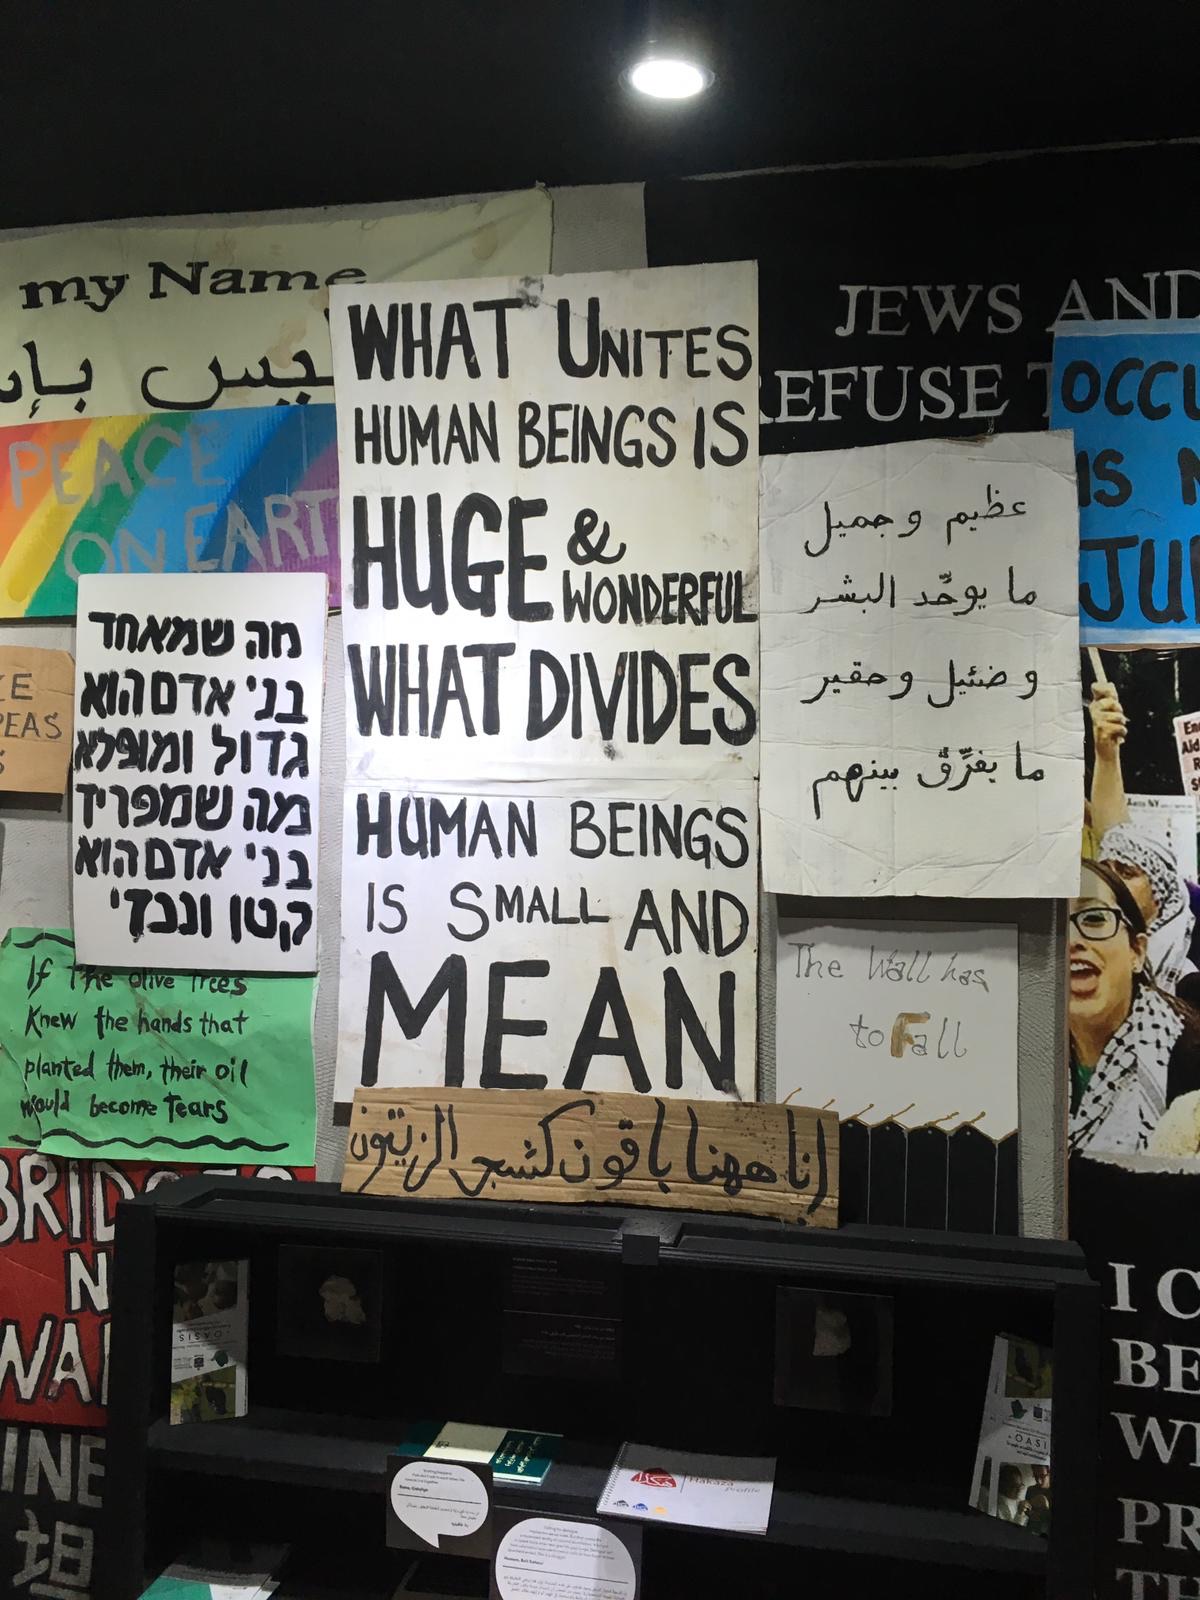 my Name
ليس بإس
PEACE
ON EARTH
WHAT UNITES
HUMAN BEINGS IS
HUGE &
WONDERFUL
WHAT DIVIDES
HUMAN BEINGS
IS SMALL AND
MEAN
JEWS AND
REFUSE
OCCU
IS N
JU
מה שמאחד
בני אדם הוא
גדול ומופלא
מה שמפריד
בני אדם הוא
קטן ונבזי
عظيم و جميل
ما يوحّد البشر
و ضئيل و حقير
ما يفرّق بينهم
PEAS
If the olive trees
Knew the hands that
planted them, their oil
would become tears
The Wall has
to Fall
إنا ههنا باقون كشجر الزيتون
BRIDGES
N
WA
INE
坦
I C
BE
W
PR
TH
OASIS
OASIS
Hakaza
Profile